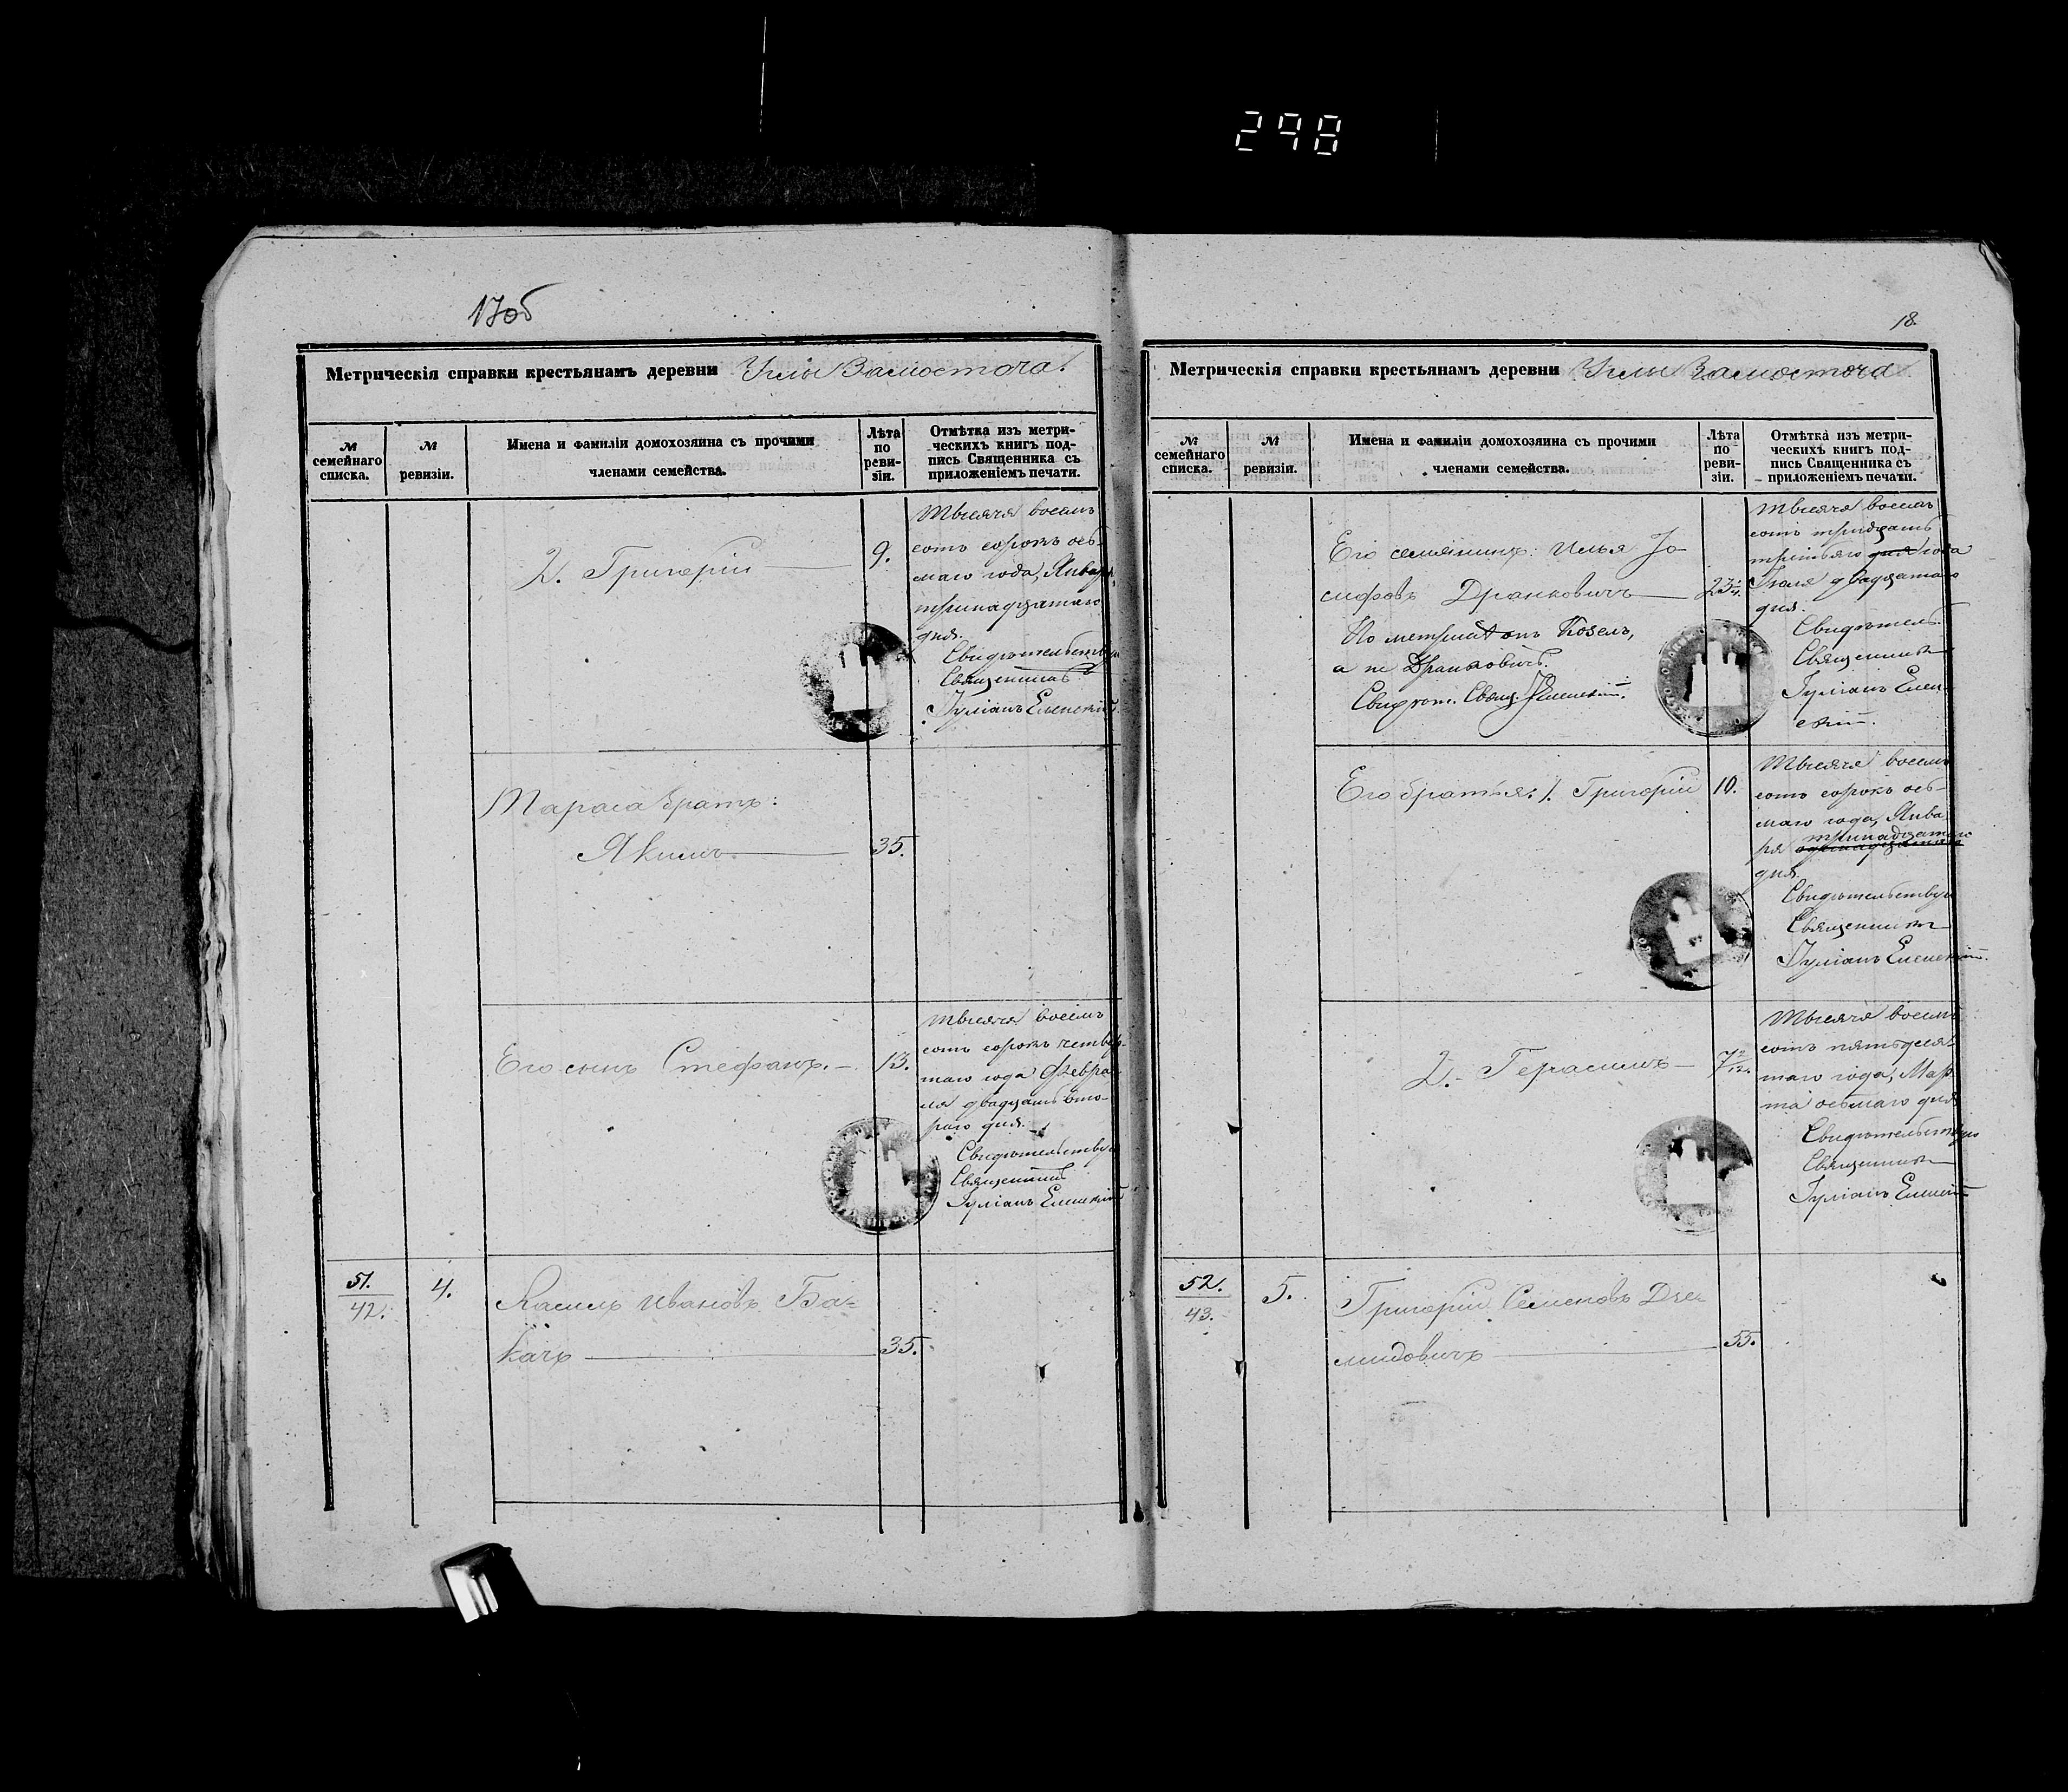 298
17об
Метрическія справки крестьянамъ деревни Углы Замосточа.
№ семейнаго списка.
№ ревизіи.
Имена и фамиліи домохозяина съ прочими членами семейства.
Лѣта по реви-зіи.
Отмѣтка изъ метри-
ческихъ книгъ под-
пись Священника съ
приложеніемъ печати.
2. Григорій 9.
Тысяча восемь
сотъ сорокъ ось-
маго года, Января
тринадцатаго
дня.
Свидѣтельствую
Священникъ
Іуліанъ Еленскій
Тараса братъ:
Якимъ 35.
Его сынъ Стефанъ. 13.
Тысяча восемь
сотъ сорокъ четвер-
таго года Февра-
ля двадцать вто-
раго дня.
Свидѣтельствую
Священникъ
Іуліанъ Еленскій
51.
42.
4.
Иванов Ба-
качъ 35.
18.
Метрическія справки крестьянамъ деревни Углы Замосточа
№ семейнаго списка.
№ ревизіи.
Имена и фамиліи домохозяина съ прочими членами семейства.
Лѣта по реви-зіи.
Отмѣтка изъ метри-
ческихъ книгъ под-
пись Священника съ
приложеніемъ печати.
Его семянинъ: Илья Іо
сифовъ Дранковичъ
По метрикѣ онъ Козелъ,
а не Дранковичъ.
Свящ. Еленскій.
Тысяча восемь
сотъ тридцать
третьяго дня года
Іюля двадцатаго
дня.
Свидѣтель.
Священникъ
Іуліанъ Елен-
скій.
Его братья: 1. Григорій 10.
Тысяча восемь
сотъ сорокъ ось-
маго года, Янва
ря тринадцатаго
дня.
Свидѣтельствую
Священникъ
Іуліанъ Еленскій.
2. Герасимъ 7 2/12.
Тысяча восемь
сотъ пятьдеся-
таго года, Мар-
та осьмаго дня
Свидѣтельствую
Священникъ
Іуліанъ Еленскій
52.
43.
5.
Григорій Семеновъ Дзе-
мидовичъ 55.